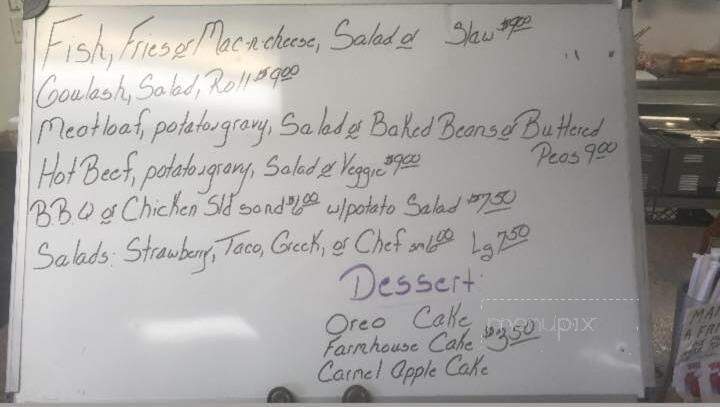 Fish, Fries or Mac-n-cheese, Salad or Slaw $9.00
Goulash, Salad, Roll $9.00
Meatloaf, potato&gravy, Salad or Baked Beans or Buttered Peas 9.00
Hot Beef, potato&gravy, Salad or Veggie $9.00
B.B.Q or Chicken Sld sand $6.00 w/potato Salad $7.50
Salads: Strawberry, Taco, Greek, or Chef sm 6.00 Lg 7.50
Dessert
Oreo Cake
Farmhouse Cake $3.50
Carmel Apple Cake
menupix